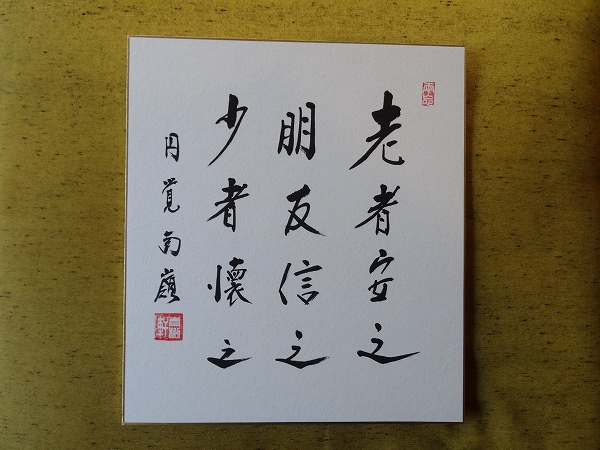 老者安之
朋友信之
少者懐之
円覚南嶺